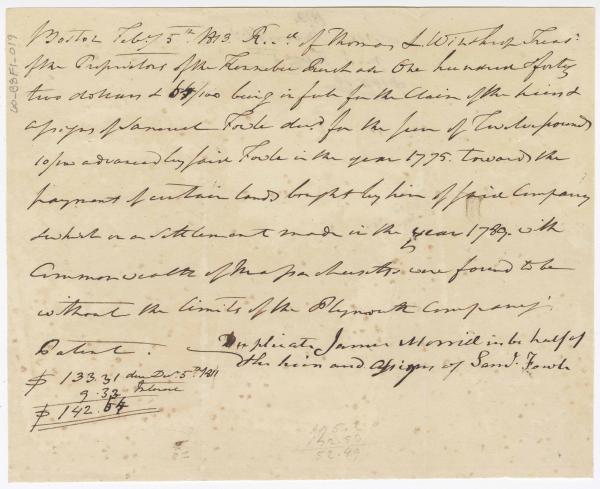 Boston Feby 5th 1813 Recd of Thomas L. Winthrop Treasr
of the Proprietors of the Kennebec Purchase One hundred & forty
two dollars & 64/100 being in full for the Claim of the heirs &
assigns of Samuel Fowle decd for the sum of Twelve pounds
10/ advanced by said Fowle in the year 1775. towards the
payment of certain lands bought by him of said Company
& which on a settlement made in the year 1789. with
Commonwealth of Massachusetts were found to be
without the limits of the Plymouth Company's
Patent.
Duplicate James Morrill in behalf of
the heirs and assigns of Saml. Fowle
$ 133.31 due Decr 5th 1811
9.33 Interest
$ 142.64
52.49
60-88F1-019